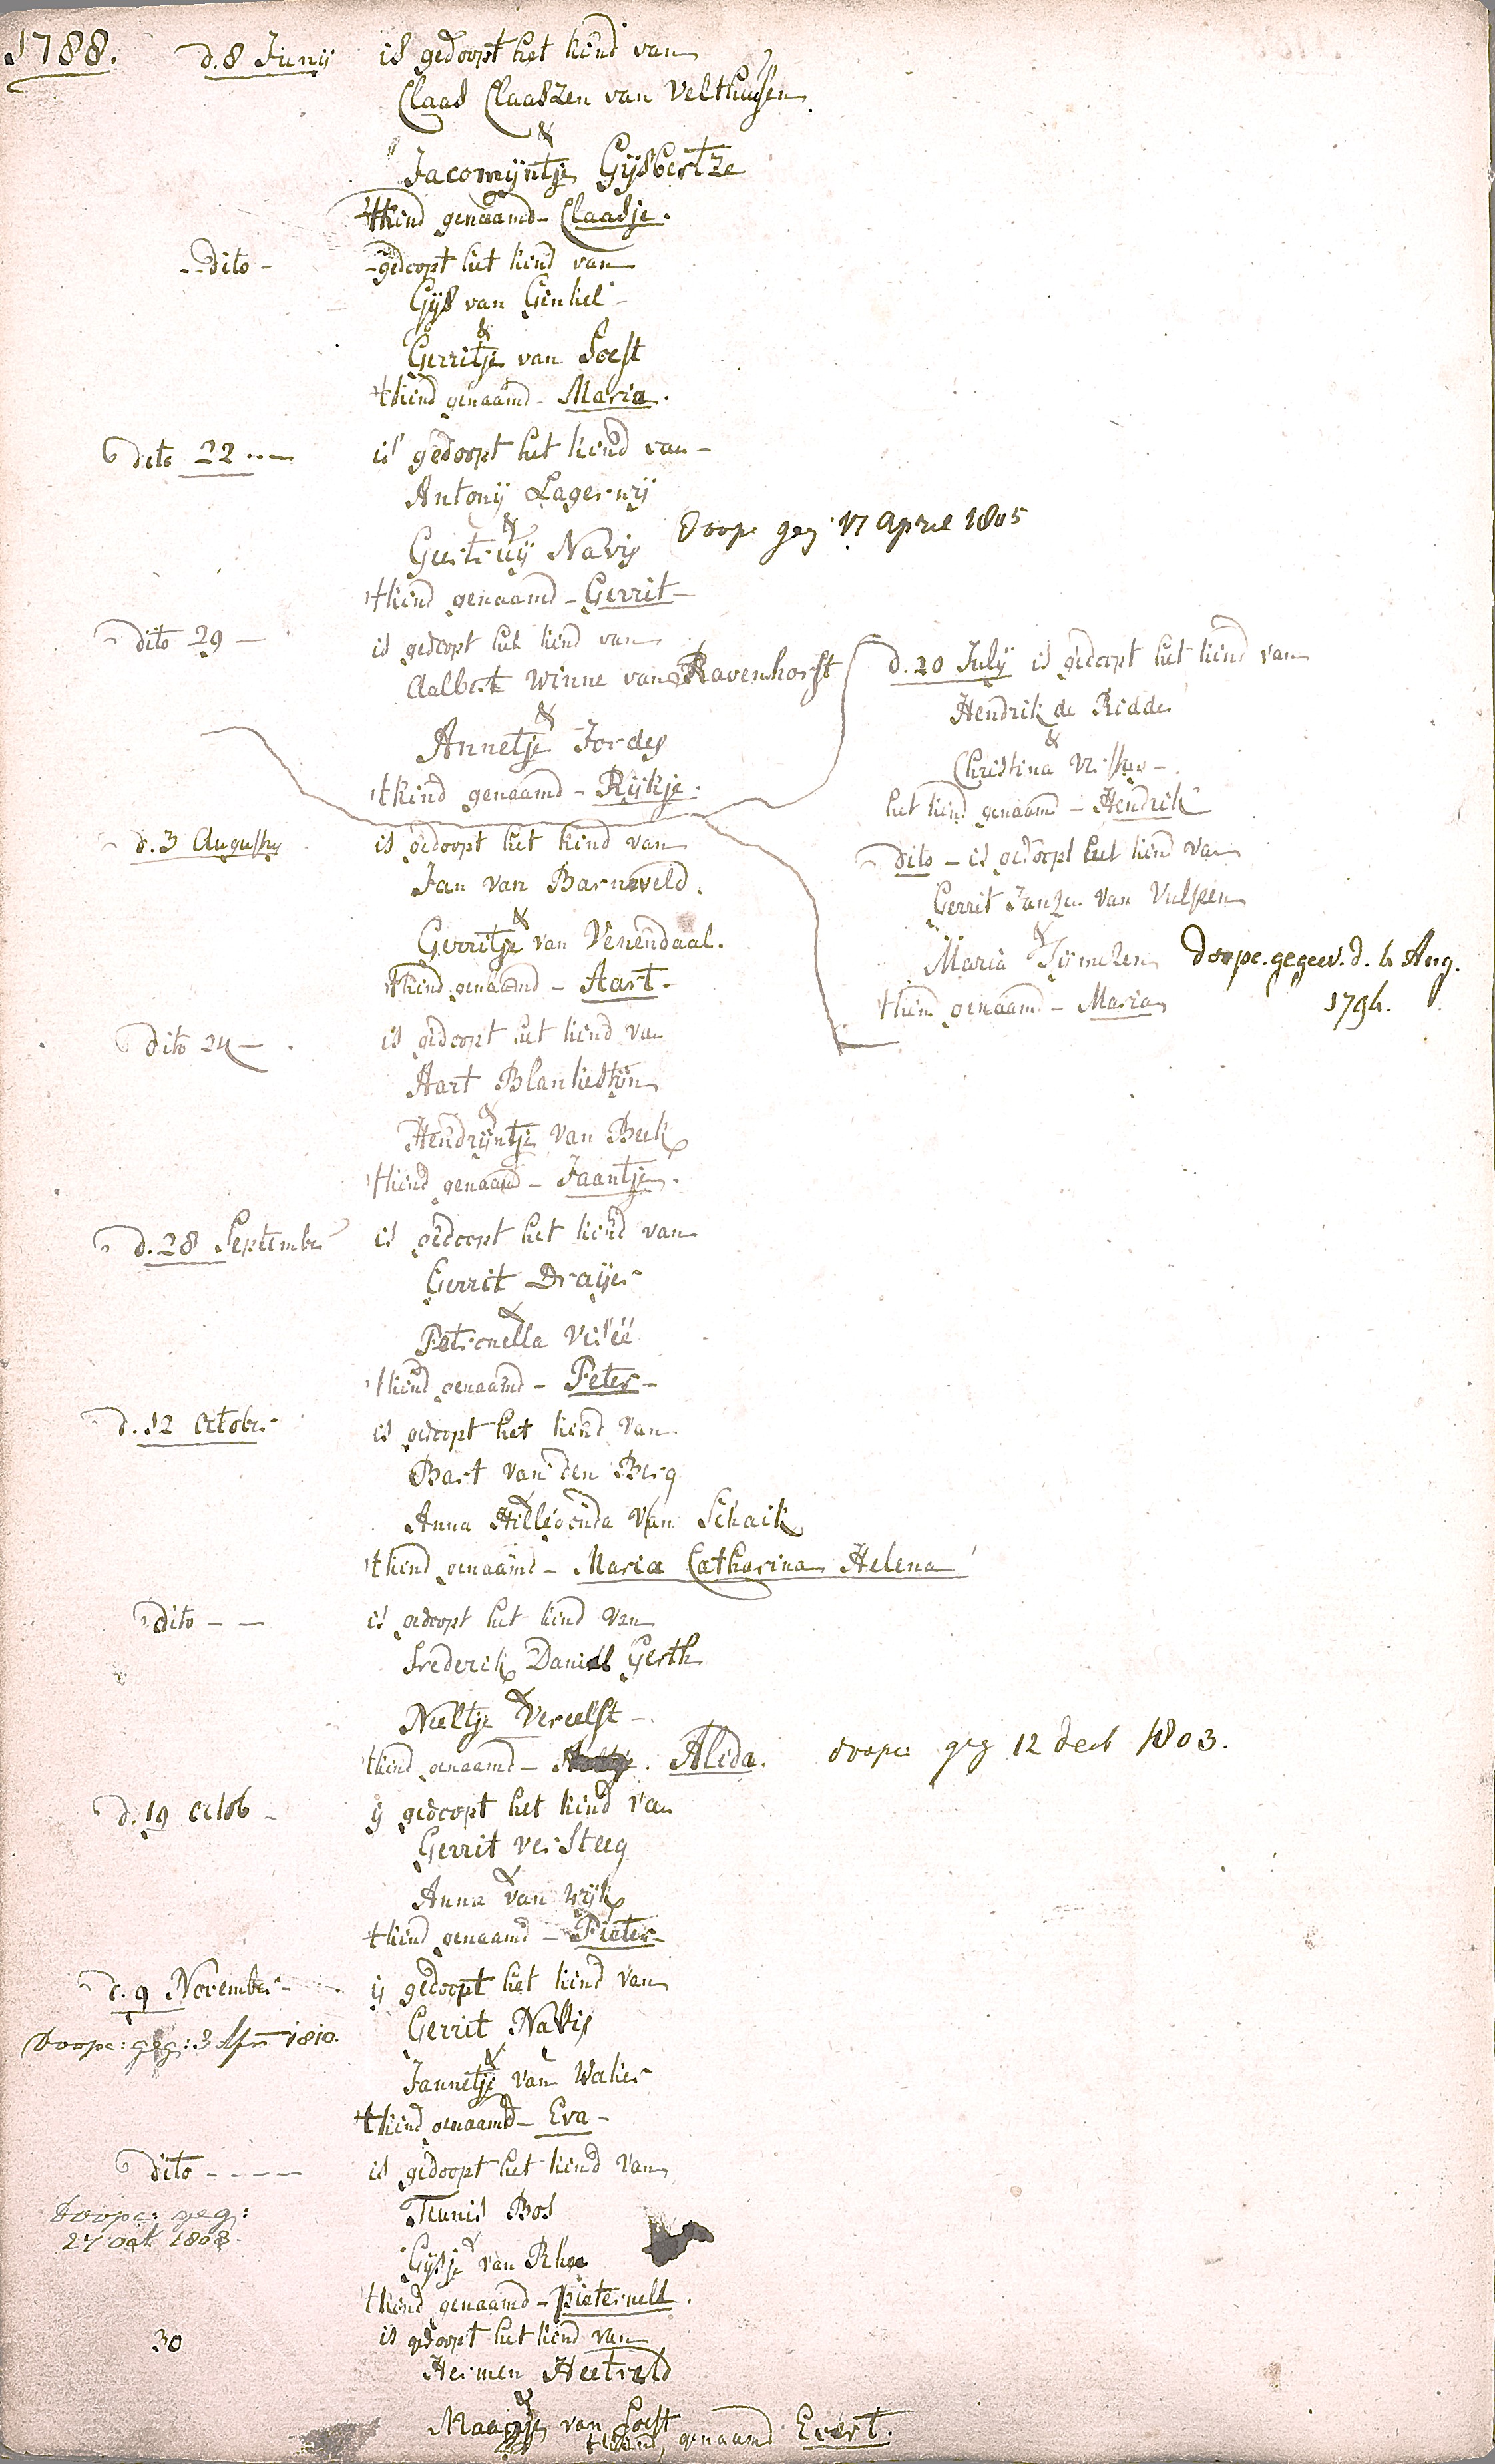 1788. d. 8 Junij is gedoopt het kind van
Claas Claaszen van Velthuisen
&
Jacomijntje Gijsbertze
't kind genaamd - Claasje.
dito - gedoopt het kind van
Gijs van Ginkel
&
Gerritje van Soest
't kind genaamd - Maria.
dito 22 is gedoopt het kind van
Antonij Lagerwij
&
Geertruij Navis doopc geg 17 april 1805
't kind genaamd - Gerrit
dito 29 is gedoopt het kind van
Aalbert Winne van Ravenhorst
&
Annetje Jordes
't kind genaamd - Rijkje.
d. 20 Julij is gedoopt het kind van
Hendrik de Ridder
&
Christina
het kind genaamd - Hendrik
dito - is gedoopt het kind van
Gerrit Janzen van Vulpen
&
Maria doopc. gegeev. d. Aug.
't kind genaamd - Maria
d. 3 Augustus is gedoopt het kind van
Jan van Barneveld.
&
Gerritje van Venendaal.
't kind genaamd - Aart.
dito 24 is gedoopt het kind van
Aart Blankestijn
&
Hendrijntje van Beek
't kind genaamd - Jaantje.
d. 28 September is gedoopt het kind van
Gerrit Draijer
&
Petronella Viseé
't kind genaamd - Peter
d. 12 October is gedoopt het kind van
Bart van den Berg
&
Anna Hillegonda van Schaik
't kind genaamd - Maria Catharina Helena
dito - - is gedoopt het kind van
Frederik Daniel Gerth
&
Neeltje Vereelst
't kind genaamd - Alida. doopc geg 12 decb 1803.
d. 19 octob - is gedoopt het kind van
Gerrit Versteeg
&
Anna van Wijk
't kind genaamd - Pieter
d. 9 November is gedoopt het kind van
Doopc: geg: 3 Apr 1810. Gerrit Navis
&
Jannetje van Waker
't kind genaamd - Eva -
dito - - - - is gedoopt het kind van
Doopc: geg: Teunis Bos
27 okt 1808. &
Gijsje van Rhee
't kind genaamd - pieternell.
30 is gedoopt het kind van
Hermen Heetveld
&
Maatje van Soest
't kind genaamd Evert.